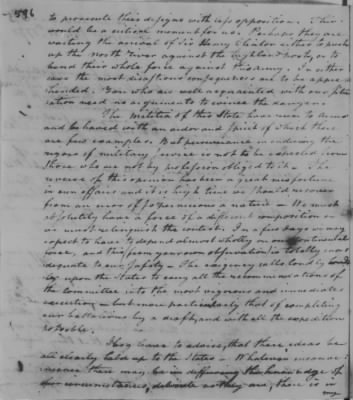 586
to prosecute their designs with less opposition. This
would be a critical moment for us. Perhaps they are
waiting the arrival of Sir Henry Clinton either to push
up the North River against the Highland posts, or to
bend their whole force against this army. In either
case the most disastrous consequences are to be appre-
hended. You who are well acquainted with our situ-
ation need no arguments to evince the danger.
The Militia of this State have run to arms
and behaved with an ardor and spirit of which there
are few examples. But perseverance in enduring the
rigors of military service is not to be expected from
those who are not by profession obliged to it. The
reverse of this opinion has been a great misfortune
in our affairs and it is high time we should recover
from an error of so pernicious a nature. We must
absolutely have a force of a different composition or
we must relinquish the contest. In a few days we may
expect to have to depend almost wholly on our Continental
force, and this from your own observation is totally in-
adequate to our safety. The exigency calls loudly
upon the States to carry all the recommendations of
the Committee into the most vigorous and immediate
execution but more particularly that of completing
our battalions by a draft and with all the expedition
possible.
I beg leave to advise, that these ideas be
all clearly held up to the States. Whatever
there may be in diffusing the knowledge of
our circumstances, delicate as they are, there is in
my